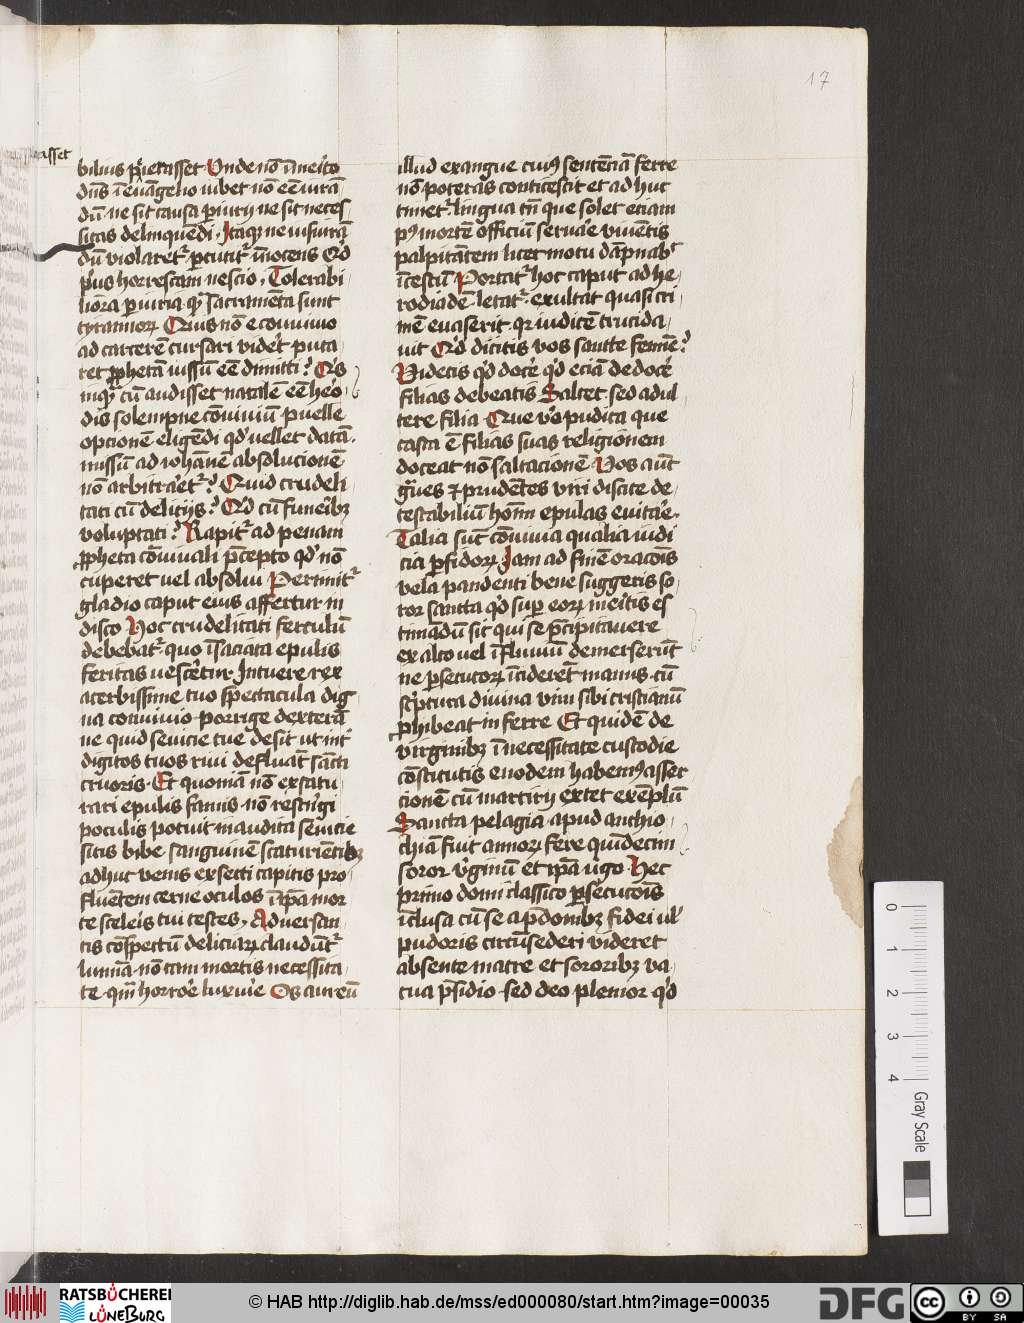 17
asset
bibus p̄ierasset Vnde nō īmeͥto
dn̄s ī ewāgelio iubet nō eē iurā
dū ne sit causa piurij ne sit neces
sitas delinquēdi . Itaqꝫ ne iusiurā
dū violaretᷣ pcutitᷣ īnocens Qd̕
p̕us horrescam nescio . Tolerabi
liora piuria qͣ sacramēta sunt
tyrannoꝝ Quis nō e conuiuio
ad carcerē cursari videt̕ puta
ret ꝓphetam iussū eē dimitti ? Qͥs
inqͣ cū audisset natalē eē heͦ
dis solempne cōuiuiū puelle
optionē eligēdi qd̕ vellet datā .
missū ad iohānē absolucionē
nō arbitͣetᷣ ? Quid crudeli
tati cū delicijs ? Qd̕ cū funeͥbꝫ
voluptati ? Rapitᷣ ad penam
ꝓpheta cōuiuali p̄cepto qd̕ nō
cuperet vel absolui Perimitᷣ
gladio caput eius affertur in
disco Hoc crudelitati ferculū
debebatᷣ . quo īsaciata epulis
feritas vescet̕ur Intuere rex
acerbissime tuo spectacula dig
na conuiuio porrige dexterā
ne quid seuicie tue desit ut intᷣ
digitos tuos riui defluāt sācti
cruoris . Et quoniā nō exsatu
rari epulis fames . nō restīgi
poculis potuit inaudita seuicie
sitis bibe sanguinē scaturiētibꝫ
adhuc venis exsecti capitis pro
fluētem cerne oculos ī ip̄a mor
te sceleis tui testes . Aduersan
tis cōspectū deliciaꝝ claudūtᷣ
lumīa . nō tam mortis necessita
te . qͣm horroe̕ luxuie̕ Os aureū
illud exangue cuiꝰ sentēciā ferre
nō poteras conticescit et adhuc
timetᷣ . lingua tn̄ que solet eciam
pꝰ mortē officiū seruae̕ viuētis
palpitātem licet motu dāpnabᷣ
īcestū Portatᷣ hoc caput ad he
rodiadē . letatᷣ . exultat quasi cri
mē euaserit . qꝛ iudicē trucida
uit Qd̕ dicitis vos sancte femīe ?
Videtis qd̕ doce̕ qd̕ eciā dedoce̕
filias debeatis Saltet . sed adul
tere filia Que vo̕ pudica que
casta ē filias suas religionem
doceat nō saltacionē Vos aūt
gͣues ⁊ prudētes viri discite de
testabiliū hōim epulas euitae̕ .
Talia sūt cōuiuia qualia iudi
cia pfidoꝝ Jam ad finē oracōis
vela pandenti bene suggeris so
ror sancta qd̕ sup eoꝝ meͥtis es
timādū sit qui se p̄cipitauere
ex alto vel ī fluuiū demerserūt
ne psecutoꝝ īciderēt manus . cū
sc̕ptura diuina vim sibi cristianū
ꝓhibeat inferre Et quidē de
virginibꝫ ī necessitate custodie
cōstitutis enodem habemꝰ asser
cionē cū martirij extet exēplū
Sancta pelagia apud anthio
chiā fuit annoꝝ fere quīdecim
soror v̕ginū et ip̄a v̕go Hec
primo domi classico psecutōis
īclusa cū se a p̄donibꝫ fidei ul̕
pudoris circūsederi videret
absente matre et sororibꝫ va
cua p̄sidio . sed deo plenior qd̕
0 1 2 3 4
Gray Scale
RATSBÜCHEREI
LÜNEBURG
© HAB http://diglib.hab.de/mss/ed000080/start.htm?image=00035
DFG
CC BY SA